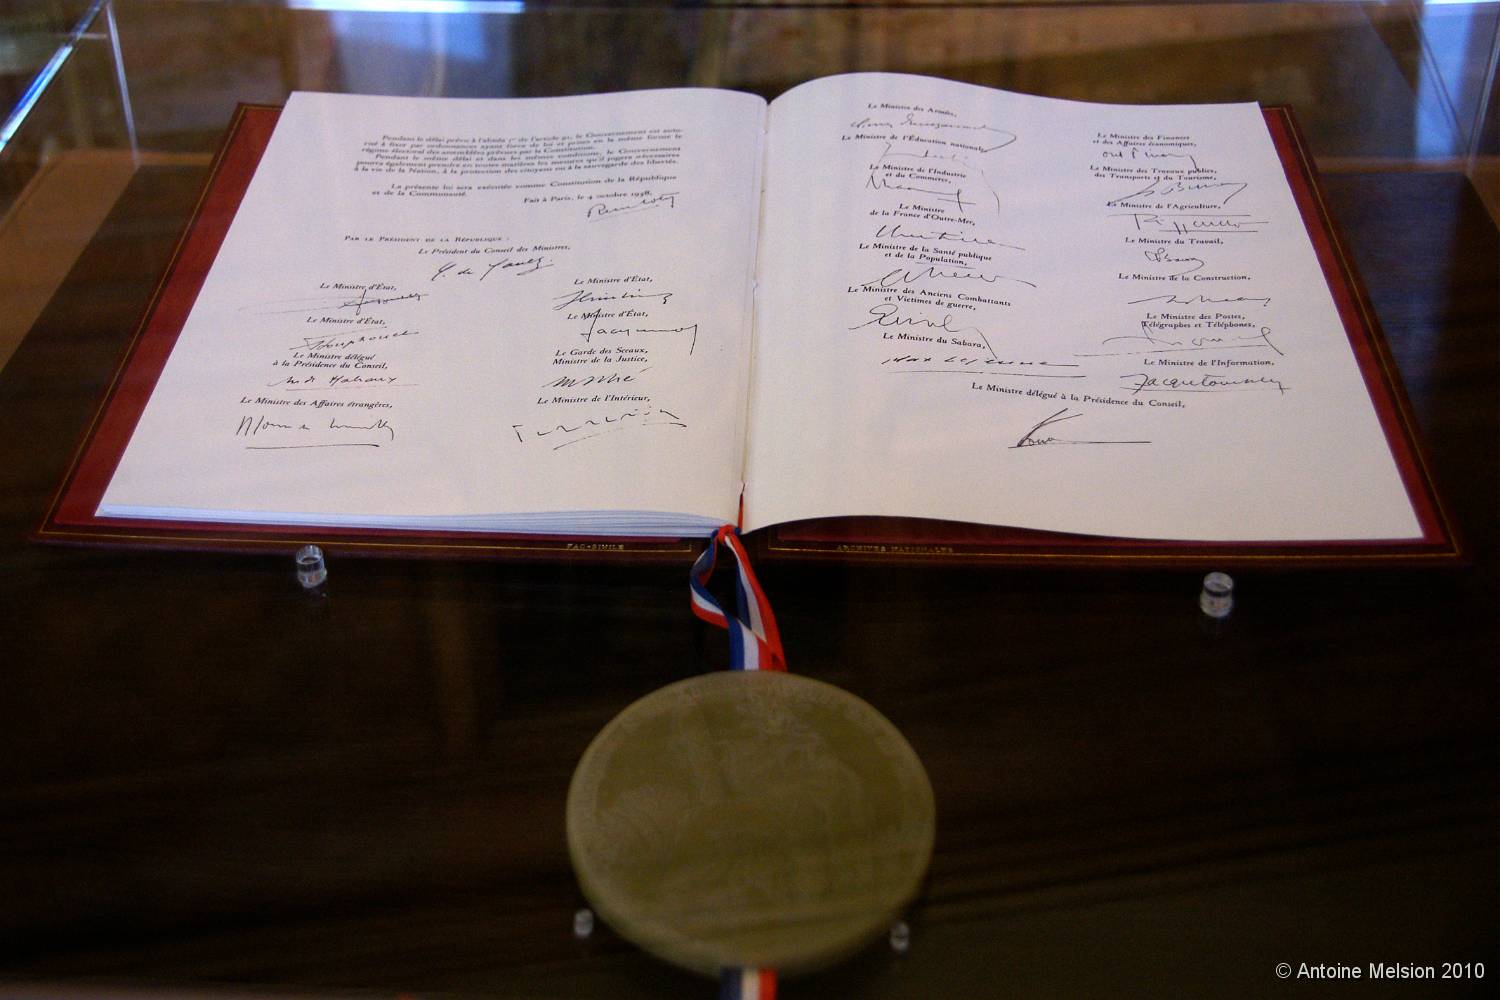 Pendant le délai prévu à l'alinéa 1er de l'article 91, le Gouvernement est auto-
risé à fixer par ordonnances ayant force de loi et prises en la même forme le
régime électoral des assemblées prévues par la Constitution.
Pendant le même délai et dans les mêmes conditions, le Gouvernement
pourra également prendre en toutes matières les mesures qu'il jugera nécessaires
à la vie de la Nation, à la protection des citoyens ou à la sauvegarde des libertés.
La présente loi sera exécutée comme Constitution de la République
et de la Communauté.
Fait à Paris, le 4 octobre 1958.
Rene Coty
PAR LE PRÉSIDENT DE LA RÉPUBLIQUE :
Le Président du Conseil des Ministres,
C. de Gaulle
Le Ministre d'État,
Le Ministre d'État,
Le Ministre délégué
à la Présidence du Conseil,
Le Ministre des Affaires étrangères,
Le Ministre d'État,
Le Ministre d'État,
Jacquinot
Le Garde des Sceaux,
Ministre de la Justice,
Le Ministre de l'Intérieur,
Le Ministre des Armées,
Le Ministre de l'Éducation nationale,
Le Ministre de l'Industrie
et du Commerce,
Le Ministre
de la France d'Outre-Mer,
Le Ministre de la Santé publique
et de la Population,
Le Ministre des Anciens Combattants
et Victimes de guerre,
Le Ministre du Sahara,
Max Lejeune
Le Ministre des Finances
et des Affaires économiques,
Le Ministre des Travaux publics,
des Transports et du Tourisme,
Le Ministre de l'Agriculture,
Le Ministre du Travail,
Le Ministre de la Construction,
Le Ministre des Postes,
Télégraphes et Téléphones,
Le Ministre de l'Information,
Le Ministre délégué à la Présidence du Conseil,
FAC-SIMILE
ARCHIVES NATIONALES
© Antoine Melsion 2010